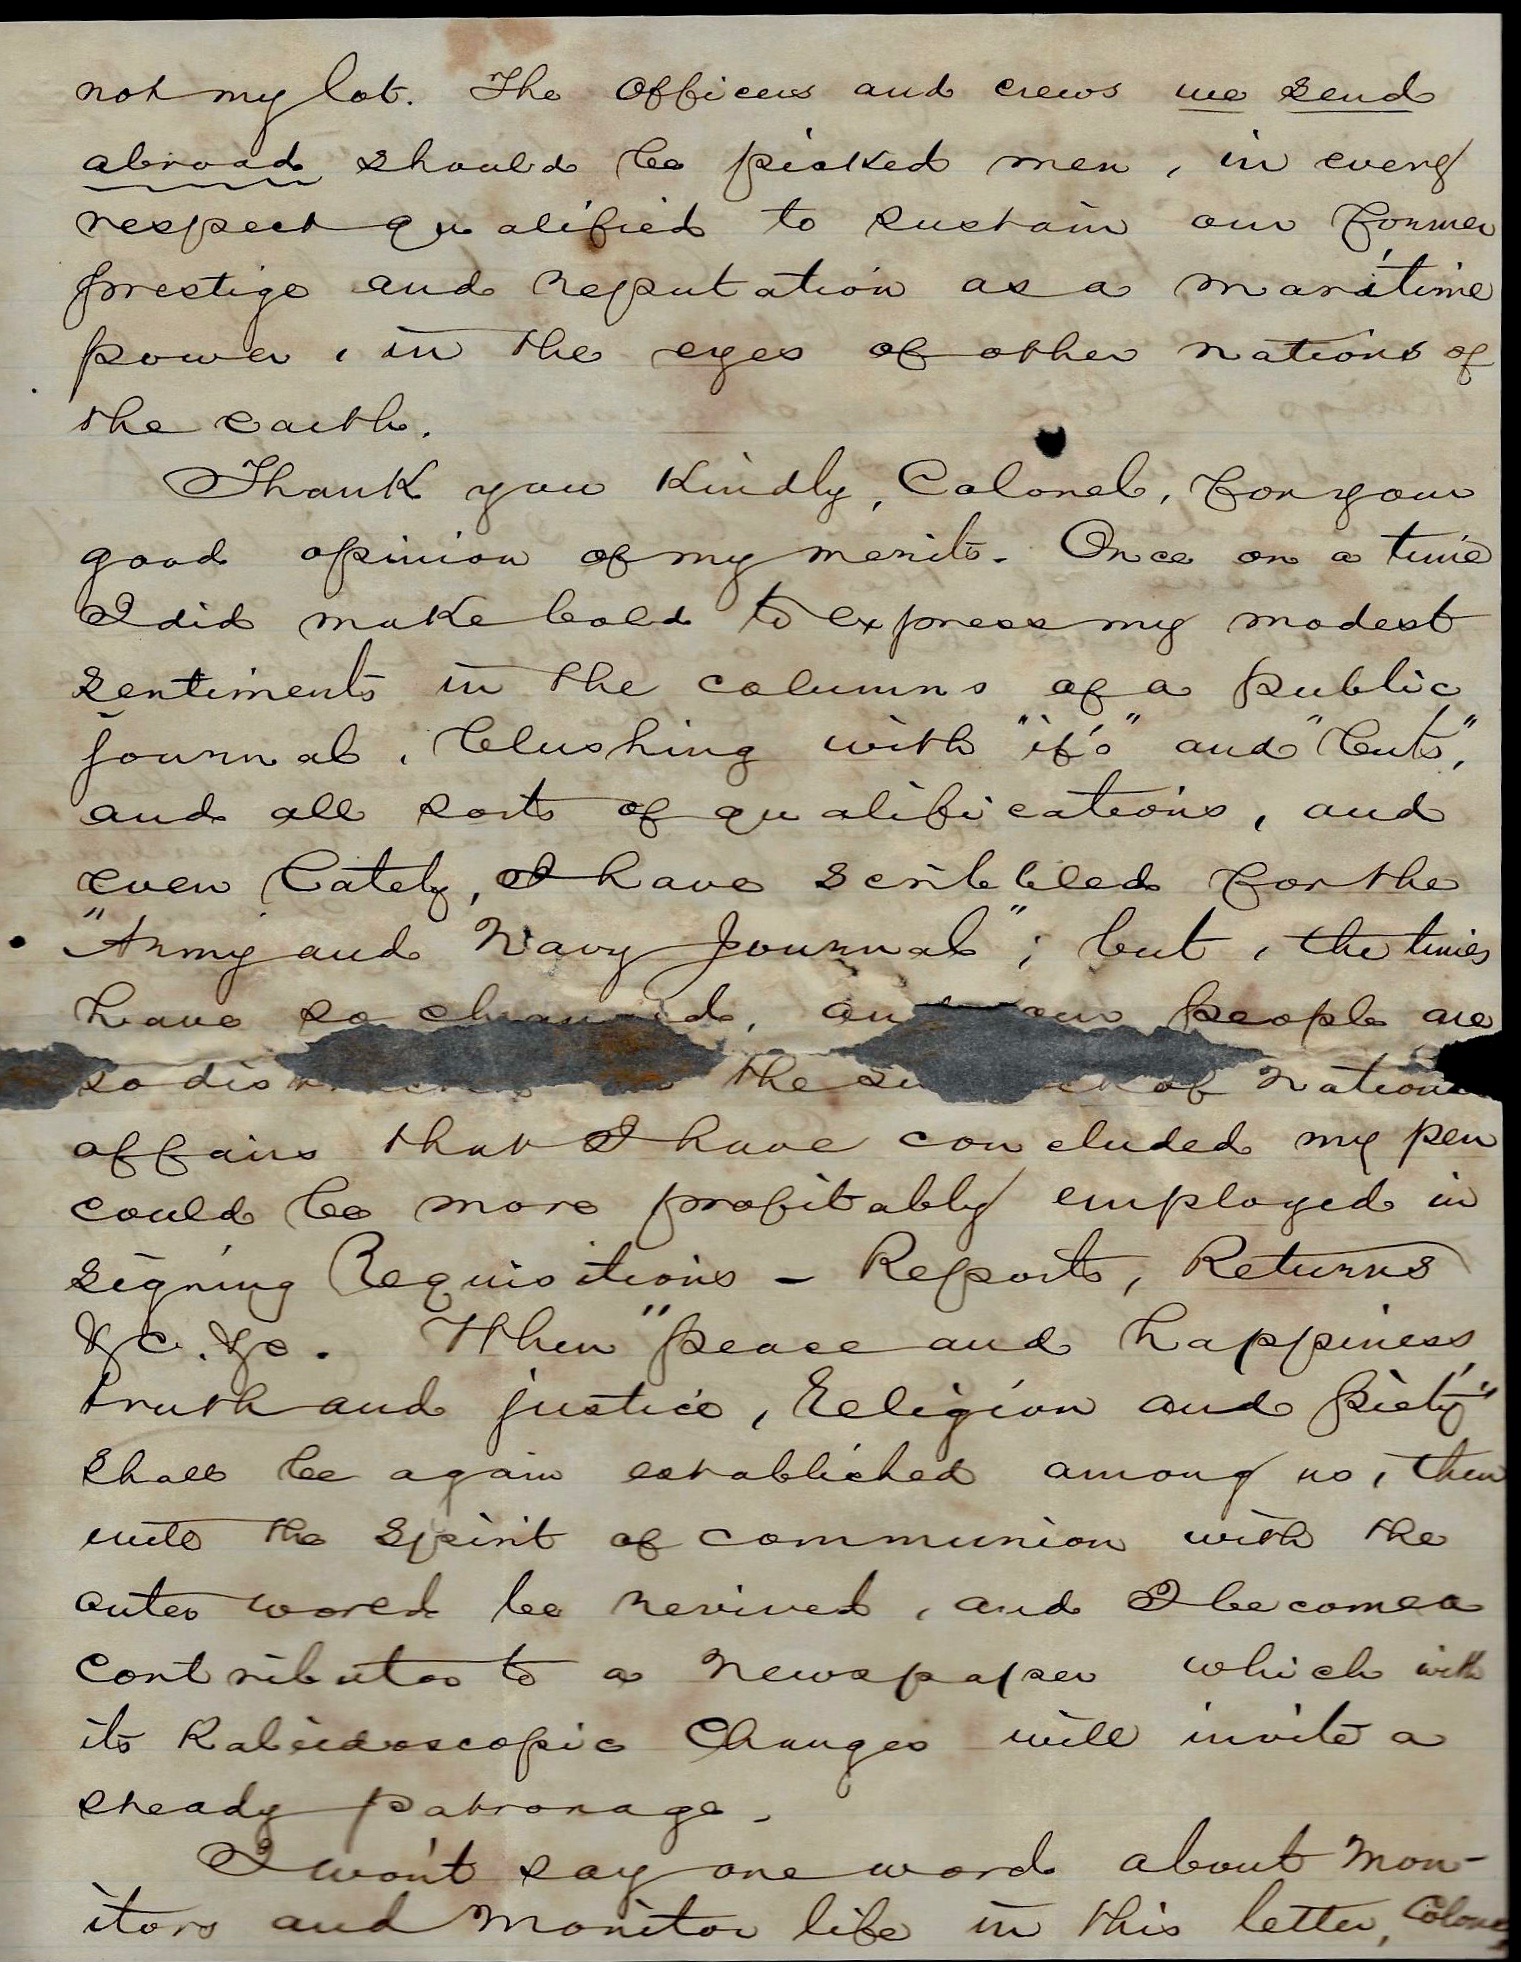 not my lot. The officers and crews we send
abroad should be picked men, in every
respect qualified to sustain our former
prestige and reputation as a maritime
power, in the eyes of other nations of
the earth.
Thank you kindly, Colonel, for your
good opinion of my merits. Once on a time
I did make bold to express my modest
sentiments in the columns of a public
journal, blushing with "if's" and "buts",
and all sorts of qualifications, and
even lately, I have scribbled for the
"Army and Navy Journal"; but, the times
have so changed, and our people are
so the of
affairs that I have concluded my pen
could be more profitably employed in
signing Requisitions - Reports, Returns
&c. &c. When "peace and happiness,
truth and justice, religion and piety"
shall be again established among us, then
will the spirit of communion with the
outer world be revived, and I become a
contributor to a newspaper which with
its Kaleidoscopic changes will invite a
steady patronage.
I won't say one word about Mon-
itors and Monitor life in this letter, Colonel,